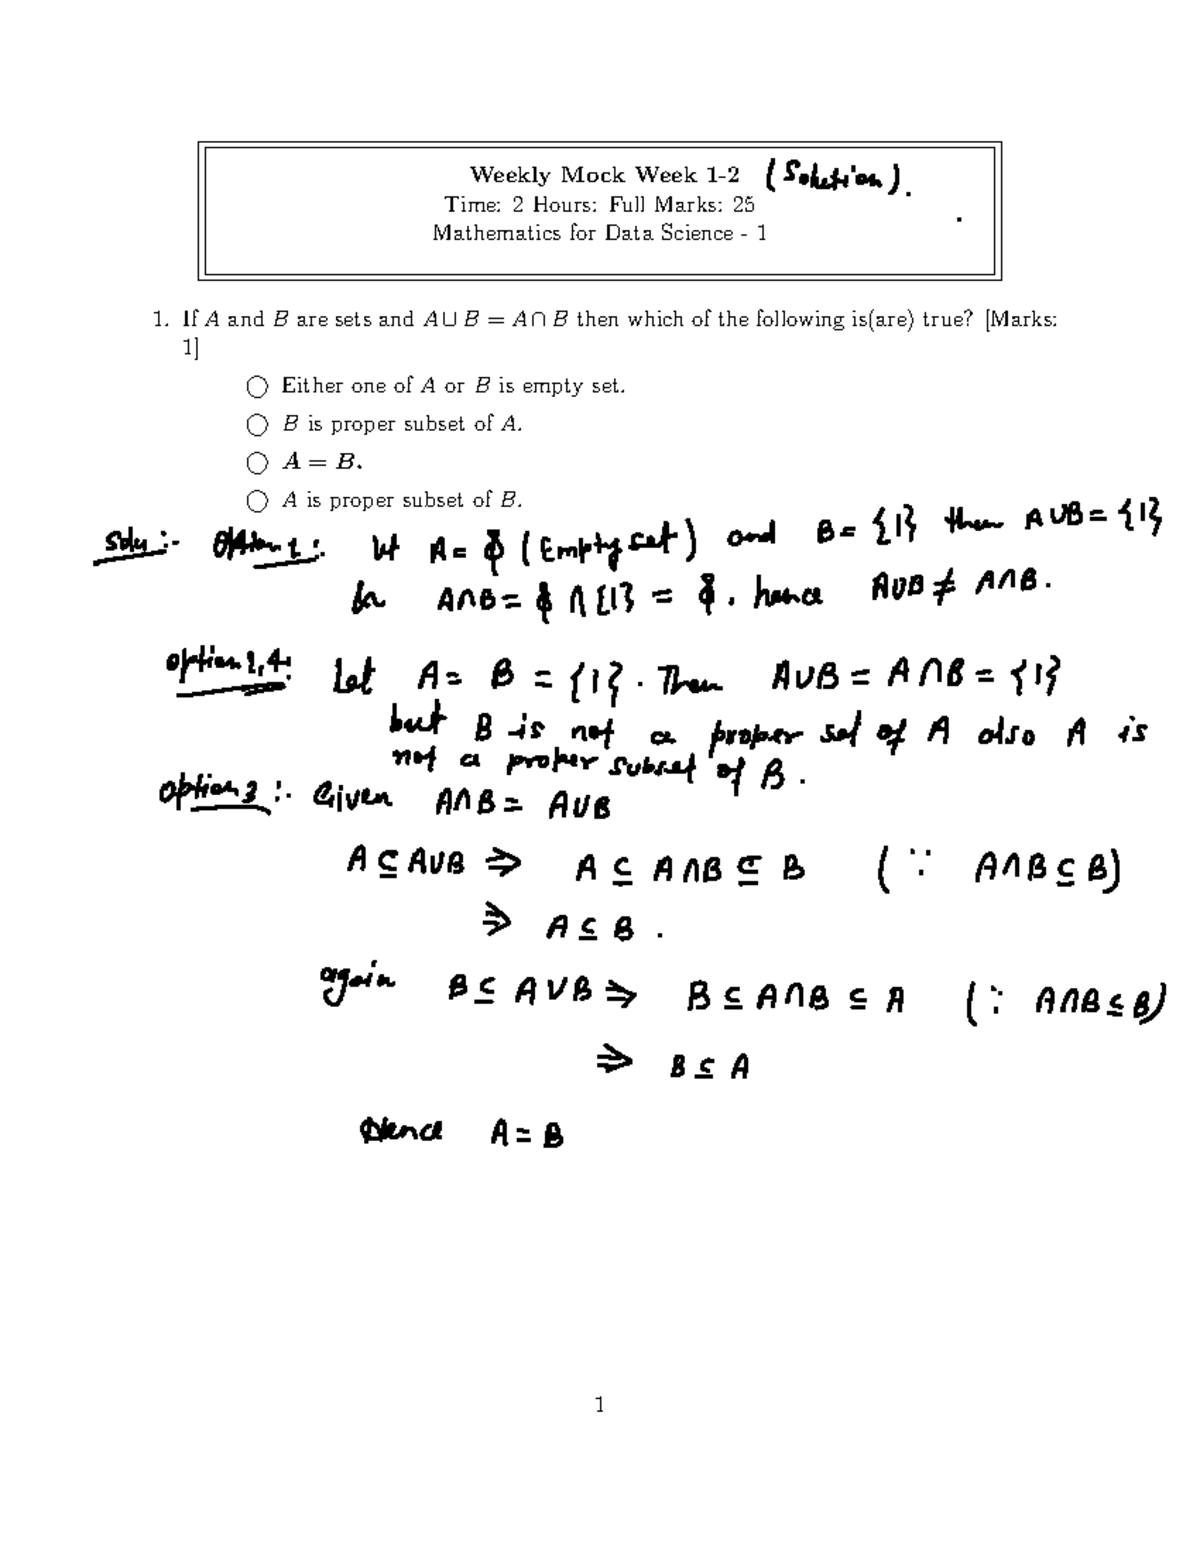 Weekly Mock Week 1-2 (Solution).
Time: 2 Hours: Full Marks: 25
Mathematics for Data Science - 1
1. If A and B are sets and A∪B = A∩B then which of the following is(are) true? [Marks:
1]
○ Either one of A or B is empty set.
○ B is proper subset of A.
○ A = B.
○ A is proper subset of B.
Solu :- Option 1 : let A = ϕ (Empty set) and B = {1} then A∪B = {1}
A∩B = ϕ ∩ {1} = ϕ. hence A∪B ≠ A∩B.
Option 2,4: Let A = B = {1}. Then A∪B = A∩B = {1}
but B is not a proper set of A also A is
not a proper subset of B.
Option 3 :- Given A∩B = A∪B
A ⊆ A∪B ⇒ A ⊆ A∩B ⊆ B (∵ A∩B ⊆ B)
⇒ A ⊆ B.
again B ⊆ A∪B ⇒ B ⊆ A∩B ⊆ A (∵ A∩B ⊆ B)
⇒ B ⊆ A
Hence A = B
1